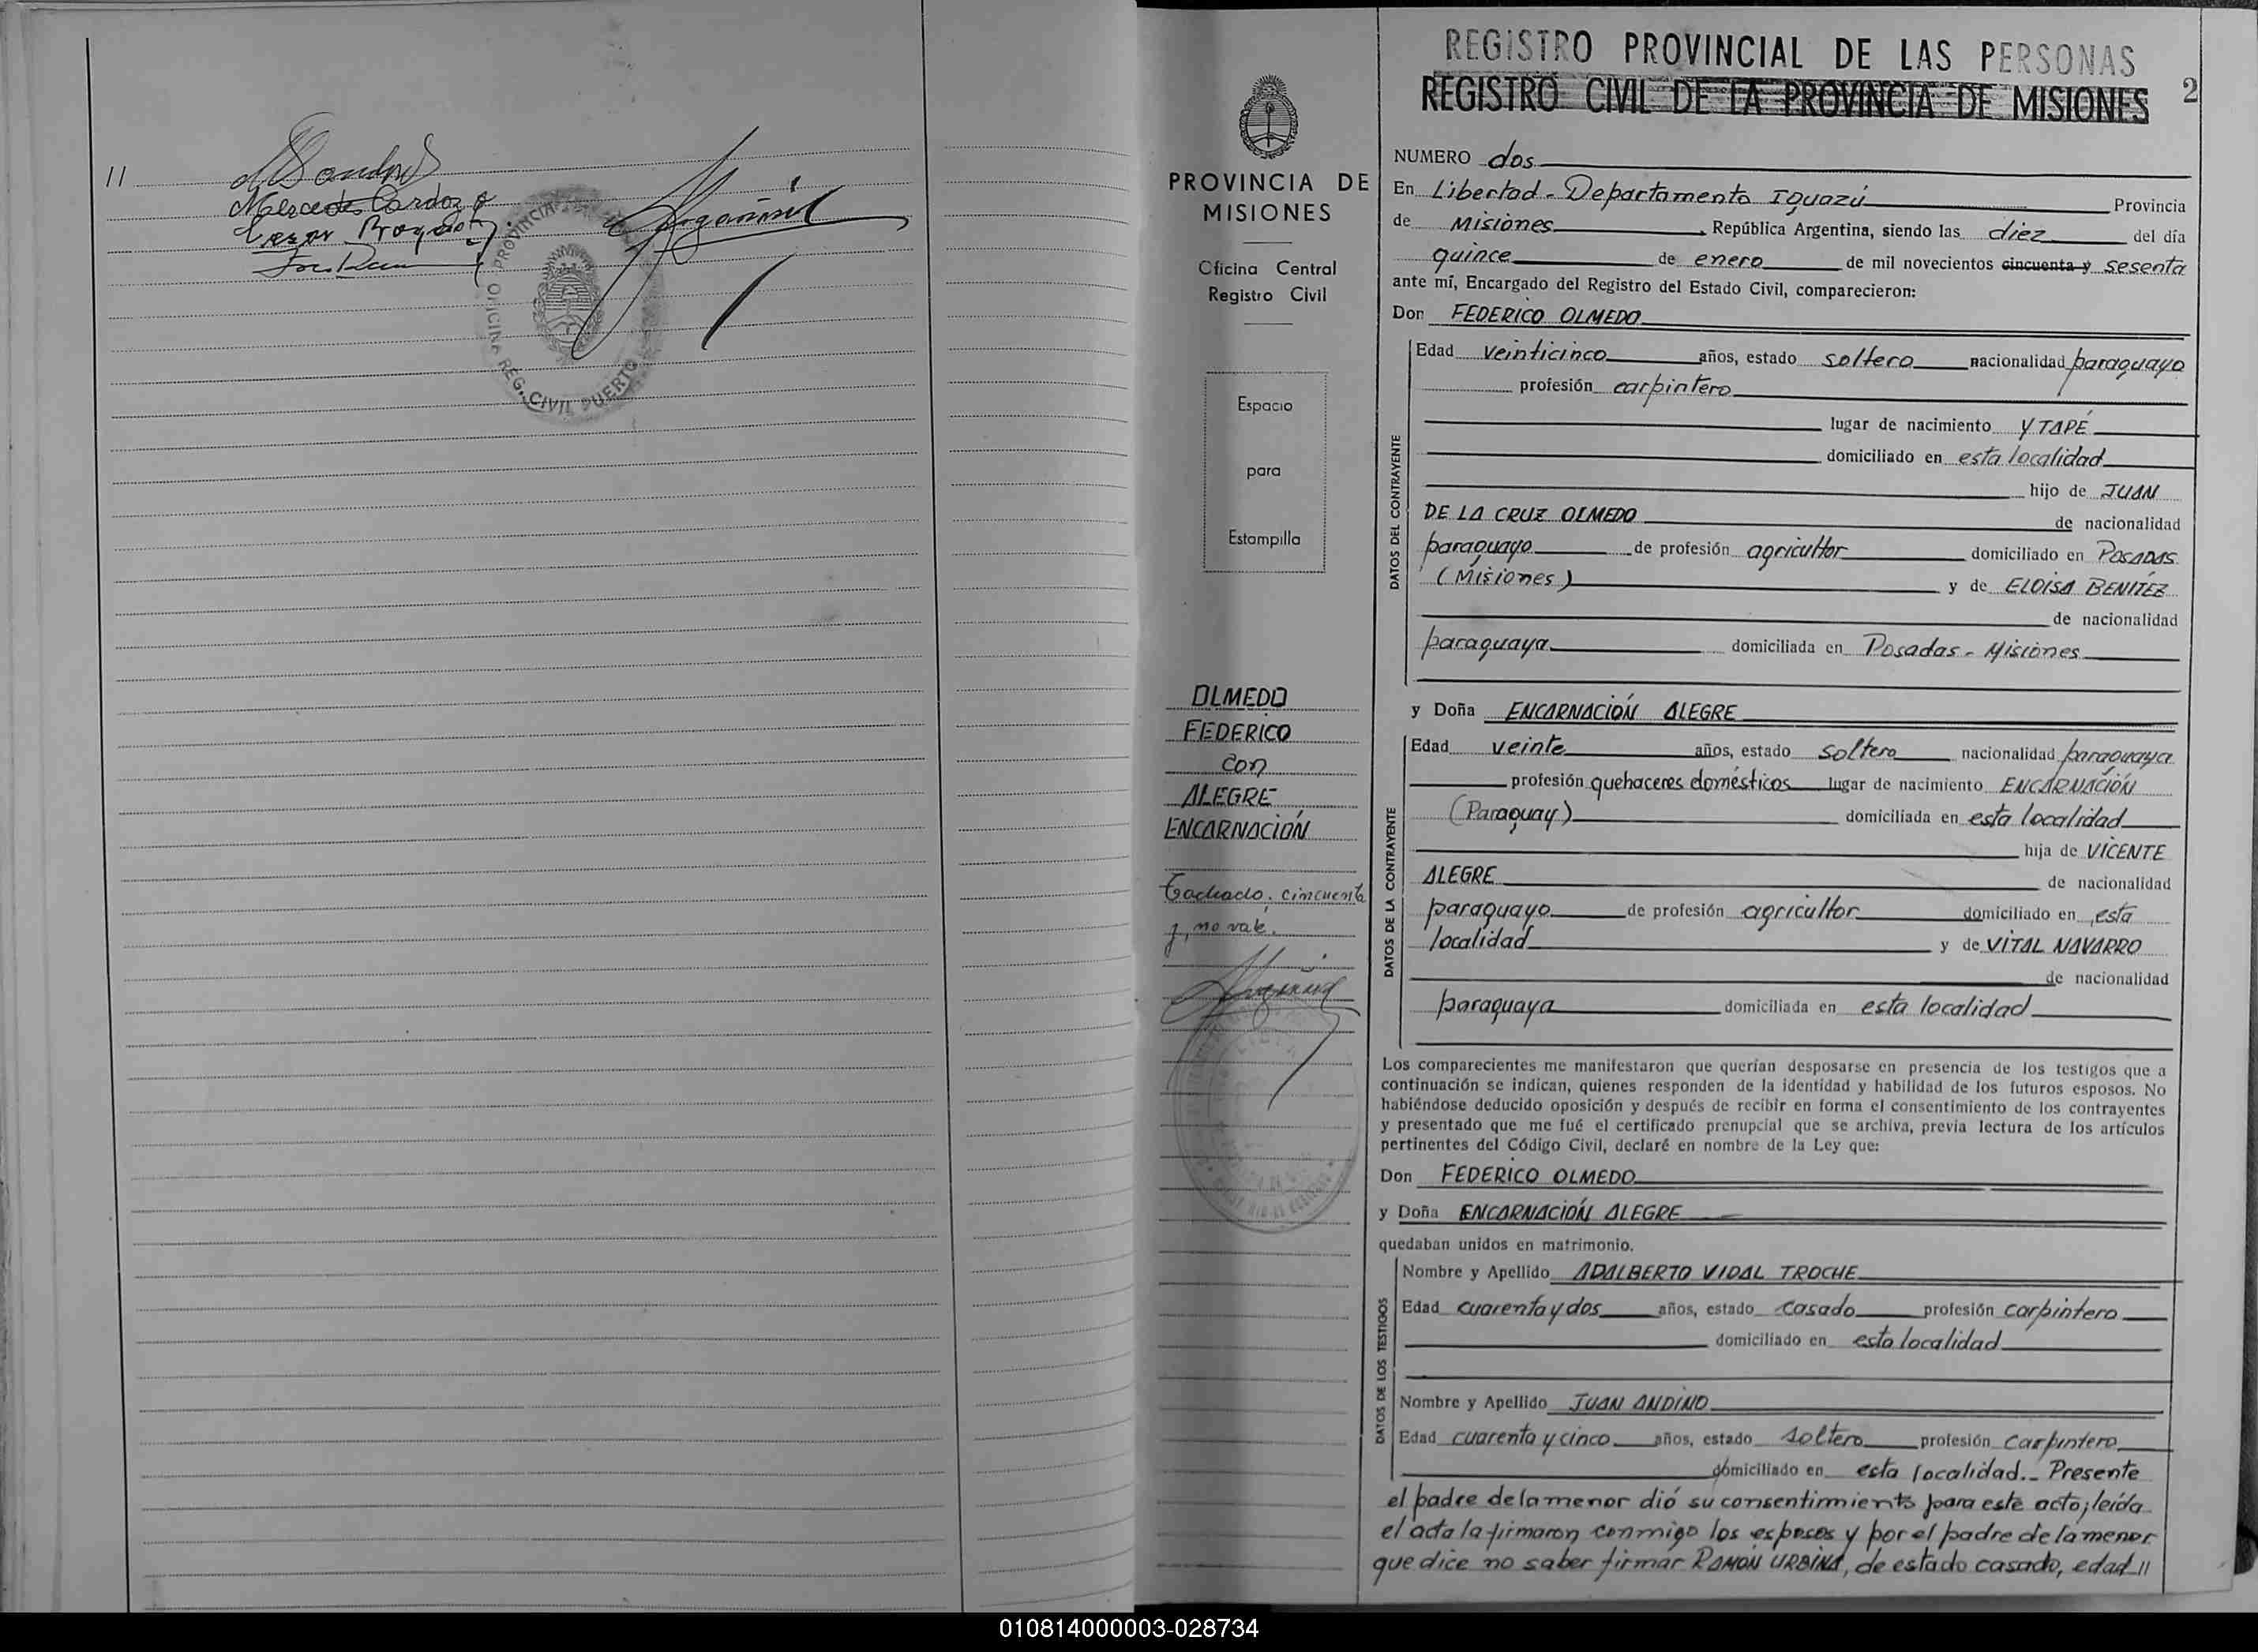 11
Mercedes Cardozo
PROVINCIA
OFICINA REG. CIVIL PUERTO
PROVINCIA DE
MISIONES
Oficina Central
Registro Civil
Espacio
para
Estampilla
OLMEDO
FEDERICO
con
ALEGRE
ENCARNACIÓN
Tachado: cincuenta
y, no vale.
REGISTRO PROVINCIAL DE LAS PERSONAS
REGISTRO CIVIL DE LA PROVINCIA DE MISIONES
2
NUMERO dos
En Libertad - Departamento IGUAZÚ Provincia
de Misiones, República Argentina, siendo las diez del día
quince de enero de mil novecientos cincuenta y sesenta
ante mí, Encargado del Registro del Estado Civil, comparecieron:
Don FEDERICO OLMEDO
DATOS DEL CONTRAYENTE
Edad veinticinco años, estado soltero nacionalidad paraguayo
profesión carpintero
lugar de nacimiento YTAPÉ
domiciliado en esta localidad
hijo de JUAN
DE LA CRUZ OLMEDO de nacionalidad
paraguayo de profesión agricultor domiciliado en POSADAS
(Misiones) y de ELOISA BENITEZ
de nacionalidad
paraguaya domiciliada en Posadas - Misiones
y Doña ENCARNACIÓN ALEGRE
DATOS DE LA CONTRAYENTE
Edad veinte años, estado soltera nacionalidad paraguaya
profesión quehaceres domésticos lugar de nacimiento ENCARNACIÓN
(Paraguay) domiciliada en esta localidad
hija de VICENTE
ALEGRE de nacionalidad
paraguayo de profesión agricultor domiciliado en esta
localidad y de VITAL NAVARRO
de nacionalidad
paraguaya domiciliada en esta localidad
Los comparecientes me manifestaron que querían desposarse en presencia de los testigos que a
continuación se indican, quienes responden de la identidad y habilidad de los futuros esposos. No
habiéndose deducido oposición y después de recibir en forma el consentimiento de los contrayentes
y presentado que me fué el certificado prenupcial que se archiva, previa lectura de los artículos
pertinentes del Código Civil, declaré en nombre de la Ley que:
Don FEDERICO OLMEDO
y Doña ENCARNACIÓN ALEGRE
quedaban unidos en matrimonio.
DATOS DE LOS TESTIGOS
Nombre y Apellido ADALBERTO VIDAL TROCHE
Edad cuarenta y dos años, estado casado profesión carpintero
domiciliado en esta localidad
Nombre y Apellido JUAN ANDINO
Edad cuarenta y cinco años, estado soltero profesión carpintero
domiciliado en esta localidad.- Presente
el padre de la menor dió su consentimiento para este acto; leída
el acta la firmaron conmigo los esposos y por el padre de la menor
que dice no saber firmar RAMÓN URBINA, de estado casado, edad 11
010814000003-028734